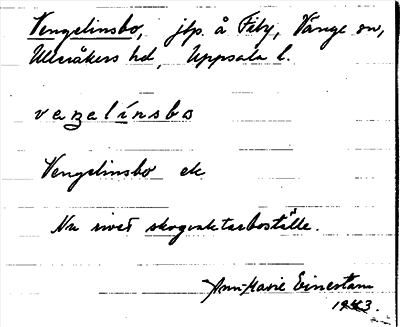 Vengelinsbo, jbp. å Fiby, Vänge sn,
Ulleråkers hd, Uppsala l.
veŋelínsbo
Vengelinsbo ek
Nu rivet skogvaktarboställe.
Ann-Marie Einerstam
1943.